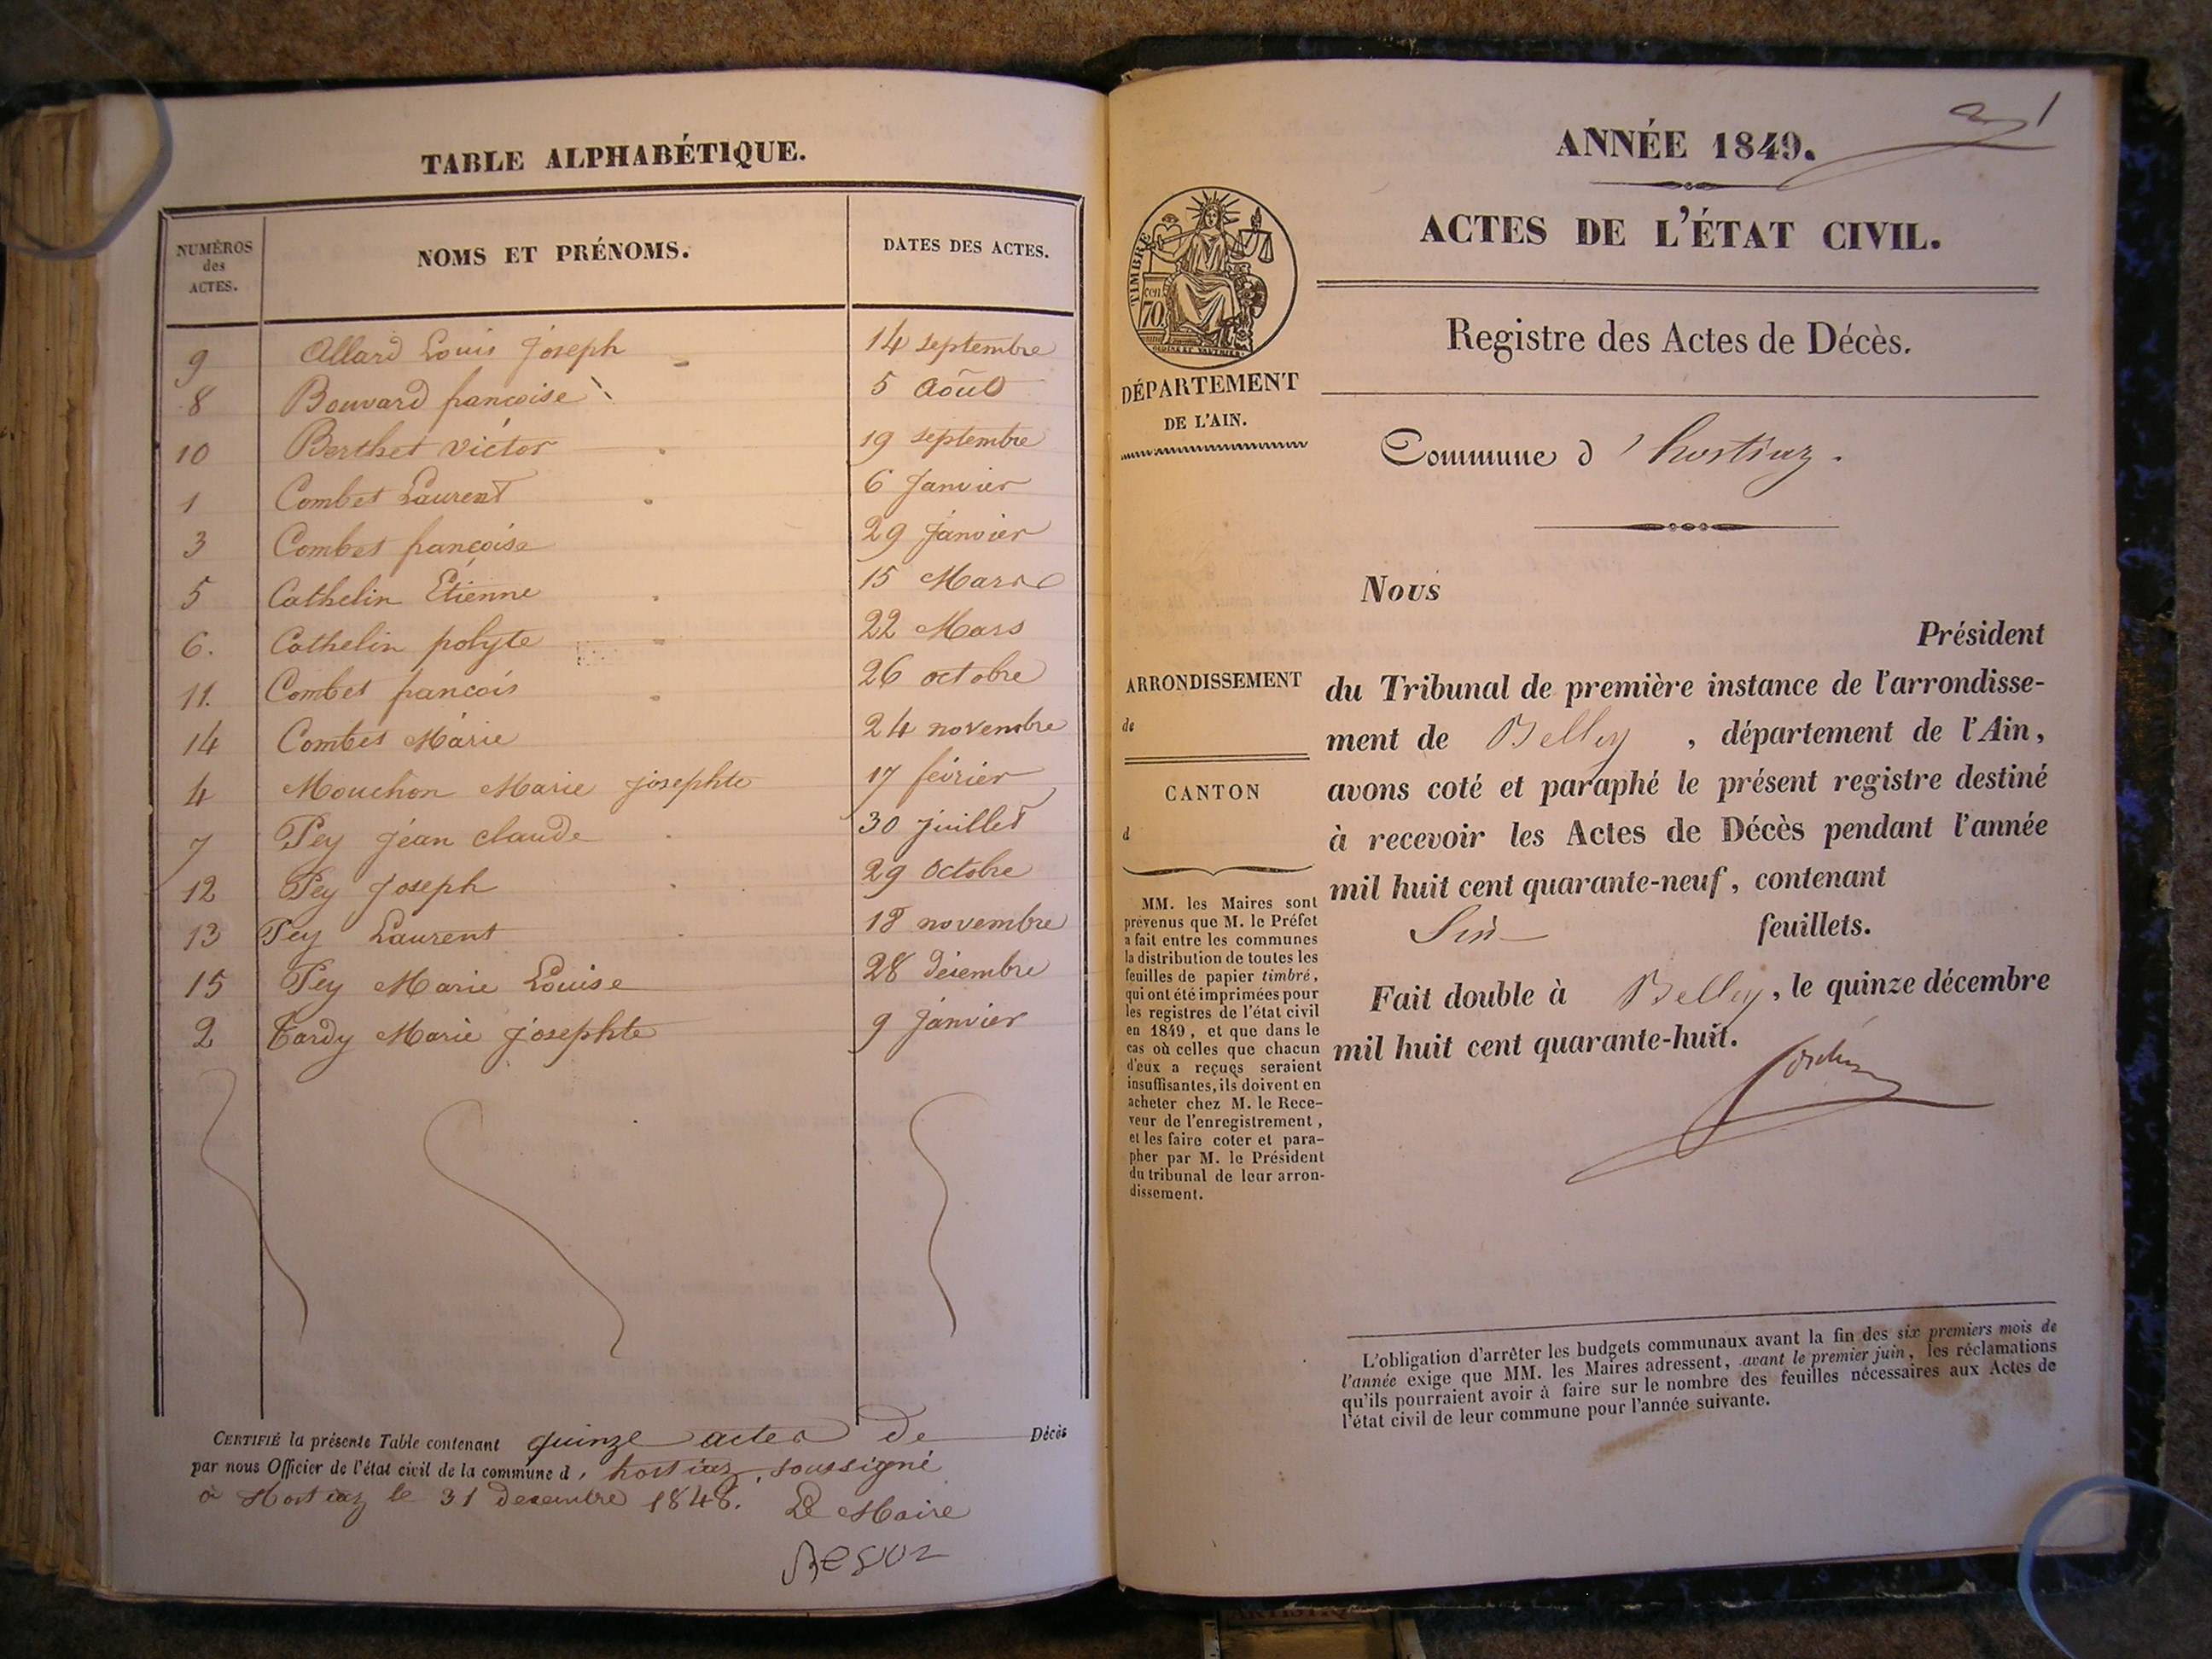 TABLE ALPHABÉTIQUE.
NUMÉROS des ACTES.
NOMS ET PRÉNOMS.
DATES DES ACTES.
9 Allard Louis Joseph 14 septembre
8 Bouvard francoise 5 Août
10 Berthet victor 19 septembre
1 Combet Laurent 6 Janvier
3 Combet françoise 29 Janvier
5 Cathelin Etienne 15 Mars
6. Cathelin polyte 22 Mars
11. Combet francois 26 octobre
14 Combet Marie 24 novembre
4 Mouchon Marie josephte 17 février
7 Pey jean claude 30 juillet
12 Pey Joseph 29 Octobre
13 Pey Laurent 18 novembre
15 Pey Marie Louise 28 décembre
2 Tardy Marie josephte 9 janvier
CERTIFIÉ la présente Table contenant quinze actes de Décès
par nous Officier de l'état civil de la commune d, hostiaz, soussigné
à Hostiaz le 31 decembre 1848. Le Maire
1
ANNÉE 1849.
ACTES DE L'ÉTAT CIVIL.
TIMBRE
cen
70
Registre des Actes de Décès.
DÉPARTEMENT
DE L'AIN.
Commune d'hostiaz.
Nous
Président
ARRONDISSEMENT
de
CANTON
d
du Tribunal de première instance de l'arrondisse-
ment de Belley, département de l'Ain,
avons coté et paraphé le présent registre destiné
à recevoir les Actes de Décès pendant l'année
mil huit cent quarante-neuf, contenant
Six feuillets.
Fait double à Belley, le quinze décembre
mil huit cent quarante-huit.
MM. les Maires sont
prévenus que M. le Préfet
a fait entre les communes
la distribution de toutes les
feuilles de papier timbré,
qui ont été imprimées pour
les registres de l'état civil
en 1849, et que dans le
cas où celles que chacun
d'eux a reçues seraient
insuffisantes, ils doivent en
acheter chez M. le Rece-
veur de l'enregistrement,
et les faire coter et para-
pher par M. le Président
du tribunal de leur arron-
dissement.
L'obligation d'arrêter les budgets communaux avant la fin des six premiers mois de
l'année exige que MM. les Maires adressent, avant le premier juin, les réclamations
qu'ils pourraient avoir à faire sur le nombre des feuilles nécessaires aux Actes de
l'état civil de leur commune pour l'année suivante.